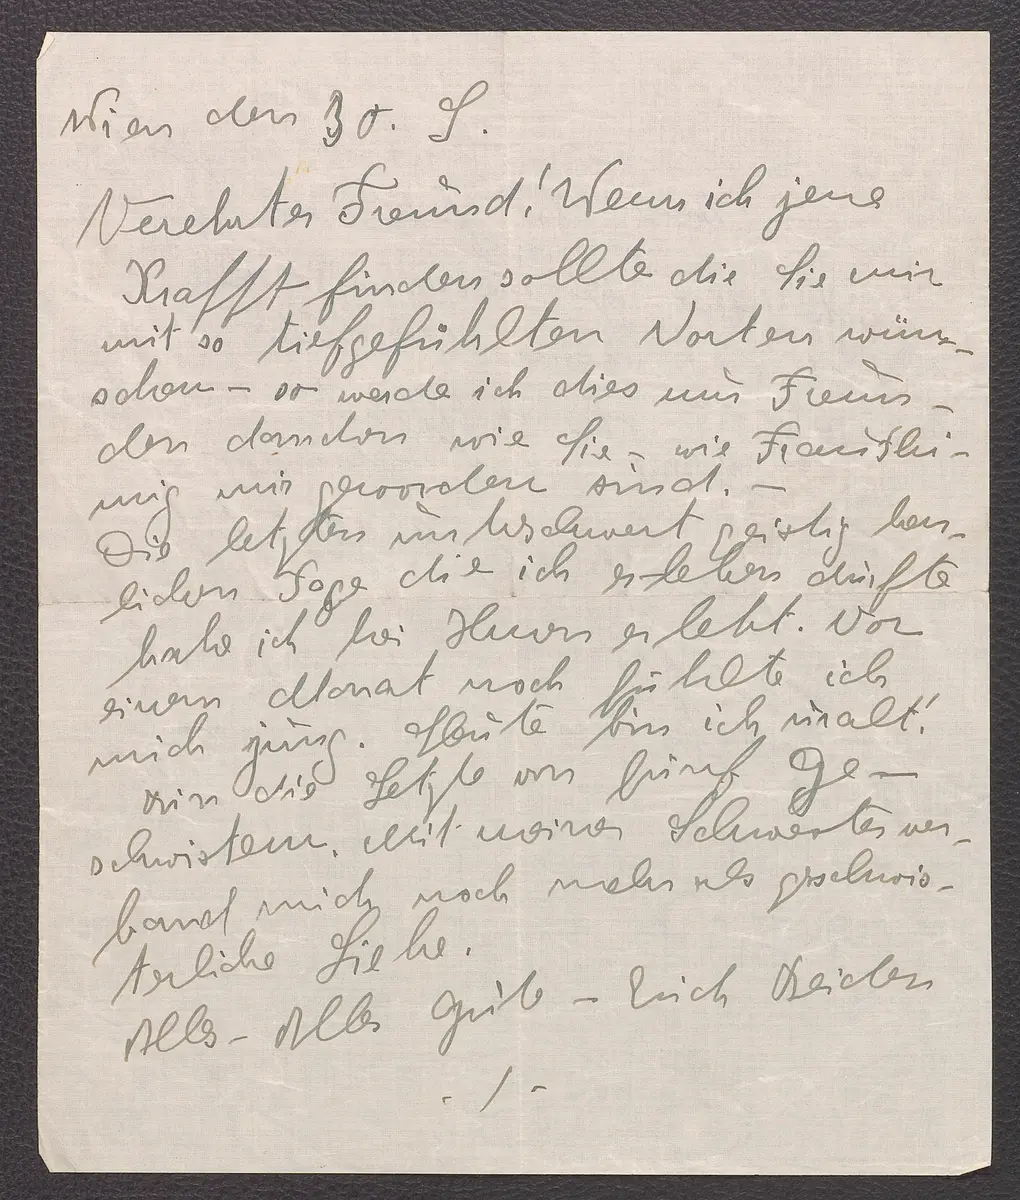 Wien den 30. S.
Verehrter Freund! Wenn ich jene
Krafft finden sollte die Sie mir
mit so tiefgefühlten Worten wün-
schen – so werde ich dies nur Freun-
den danken wie Sie – wie
mir geworden sind. –
Die letzten unbeschwert geistig herr-
lichen Tage die ich erleben durfte
habe ich bei Ihnen erlebt. Vor
einem Monat noch fühlte ich
mich jung. Heute bin ich uralt!
Bin die Letzte von fünf Ge-
schwistern. Mit meiner Schwester ver-
band mich noch mehr als geschwis-
terliche Liebe.
Alles – Alles Gute – Euch Beiden
- / -